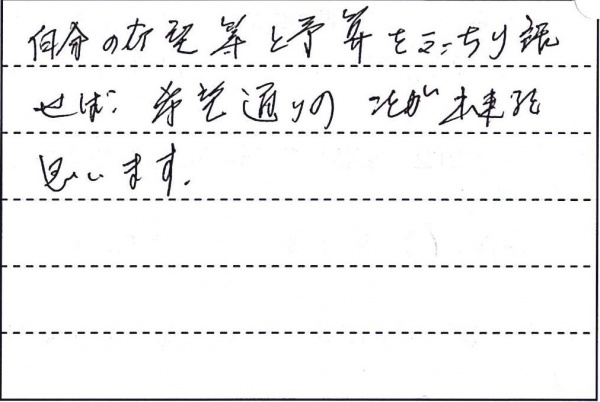 自分の希望等と予算をきっちり話
せば、希望通りの ことが出来ると
思います。